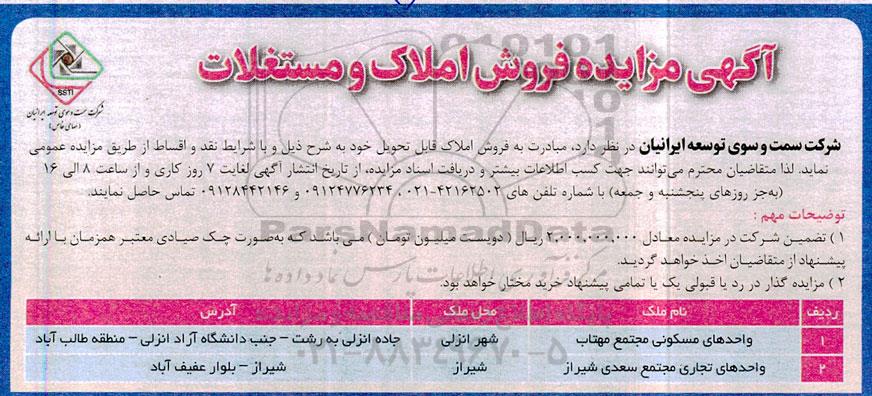 آگهی مزایده فروش املاک و مستغلات
SSTI
شرکت سمت و سوی توسعه ایرانیان
(سهامی خاص)
شرکت سمت و سوی توسعه ایرانیان در نظر دارد، مبادرت به فروش املاک قابل تحویل خود به شرح ذیل و با شرایط نقد و اقساط از طریق مزایده عمومی
نماید. لذا متقاضیان محترم می‌توانند جهت کسب اطلاعات بیشتر و دریافت اسناد مزایده، از تاریخ انتشار آگهی لغایت ۷ روز کاری و از ساعت ۸ الی ۱۶
(به‌جز روزهای پنجشنبه و جمعه) با شماره تلفن های ۴۲۱۶۲۵۰۲-۰۲۱ ، ۰۹۱۲۴۷۷۶۲۳۴ و ۰۹۱۲۸۴۴۲۱۴۶ تماس حاصل نمایند.
توضیحات مهم :
۱ ) تضمین شرکت در مزایده معادل ۲,۰۰۰,۰۰۰,۰۰۰ ریال ( دویست میلیون تومان ) می باشد که به‌صورت چک صیادی معتبر همزمان با ارائه
پیشنهاد از متقاضیان اخذ خواهد گردید.
۲ ) مزایده گذار در رد یا قبولی یک یا تمامی پیشنهاد خرید مختار خواهد بود.
ردیف نام ملک محل ملک آدرس
۱ واحدهای مسکونی مجتمع مهتاب شهر انزلی جاده انزلی به رشت – جنب دانشگاه آزاد انزلی – منطقه طالب آباد
۲ واحدهای تجاری مجتمع سعدی شیراز شیراز شیراز – بلوار عفیف آباد
ParsNamadData
۰۲۱-۸۸۳۴۹۶۷۰-۵